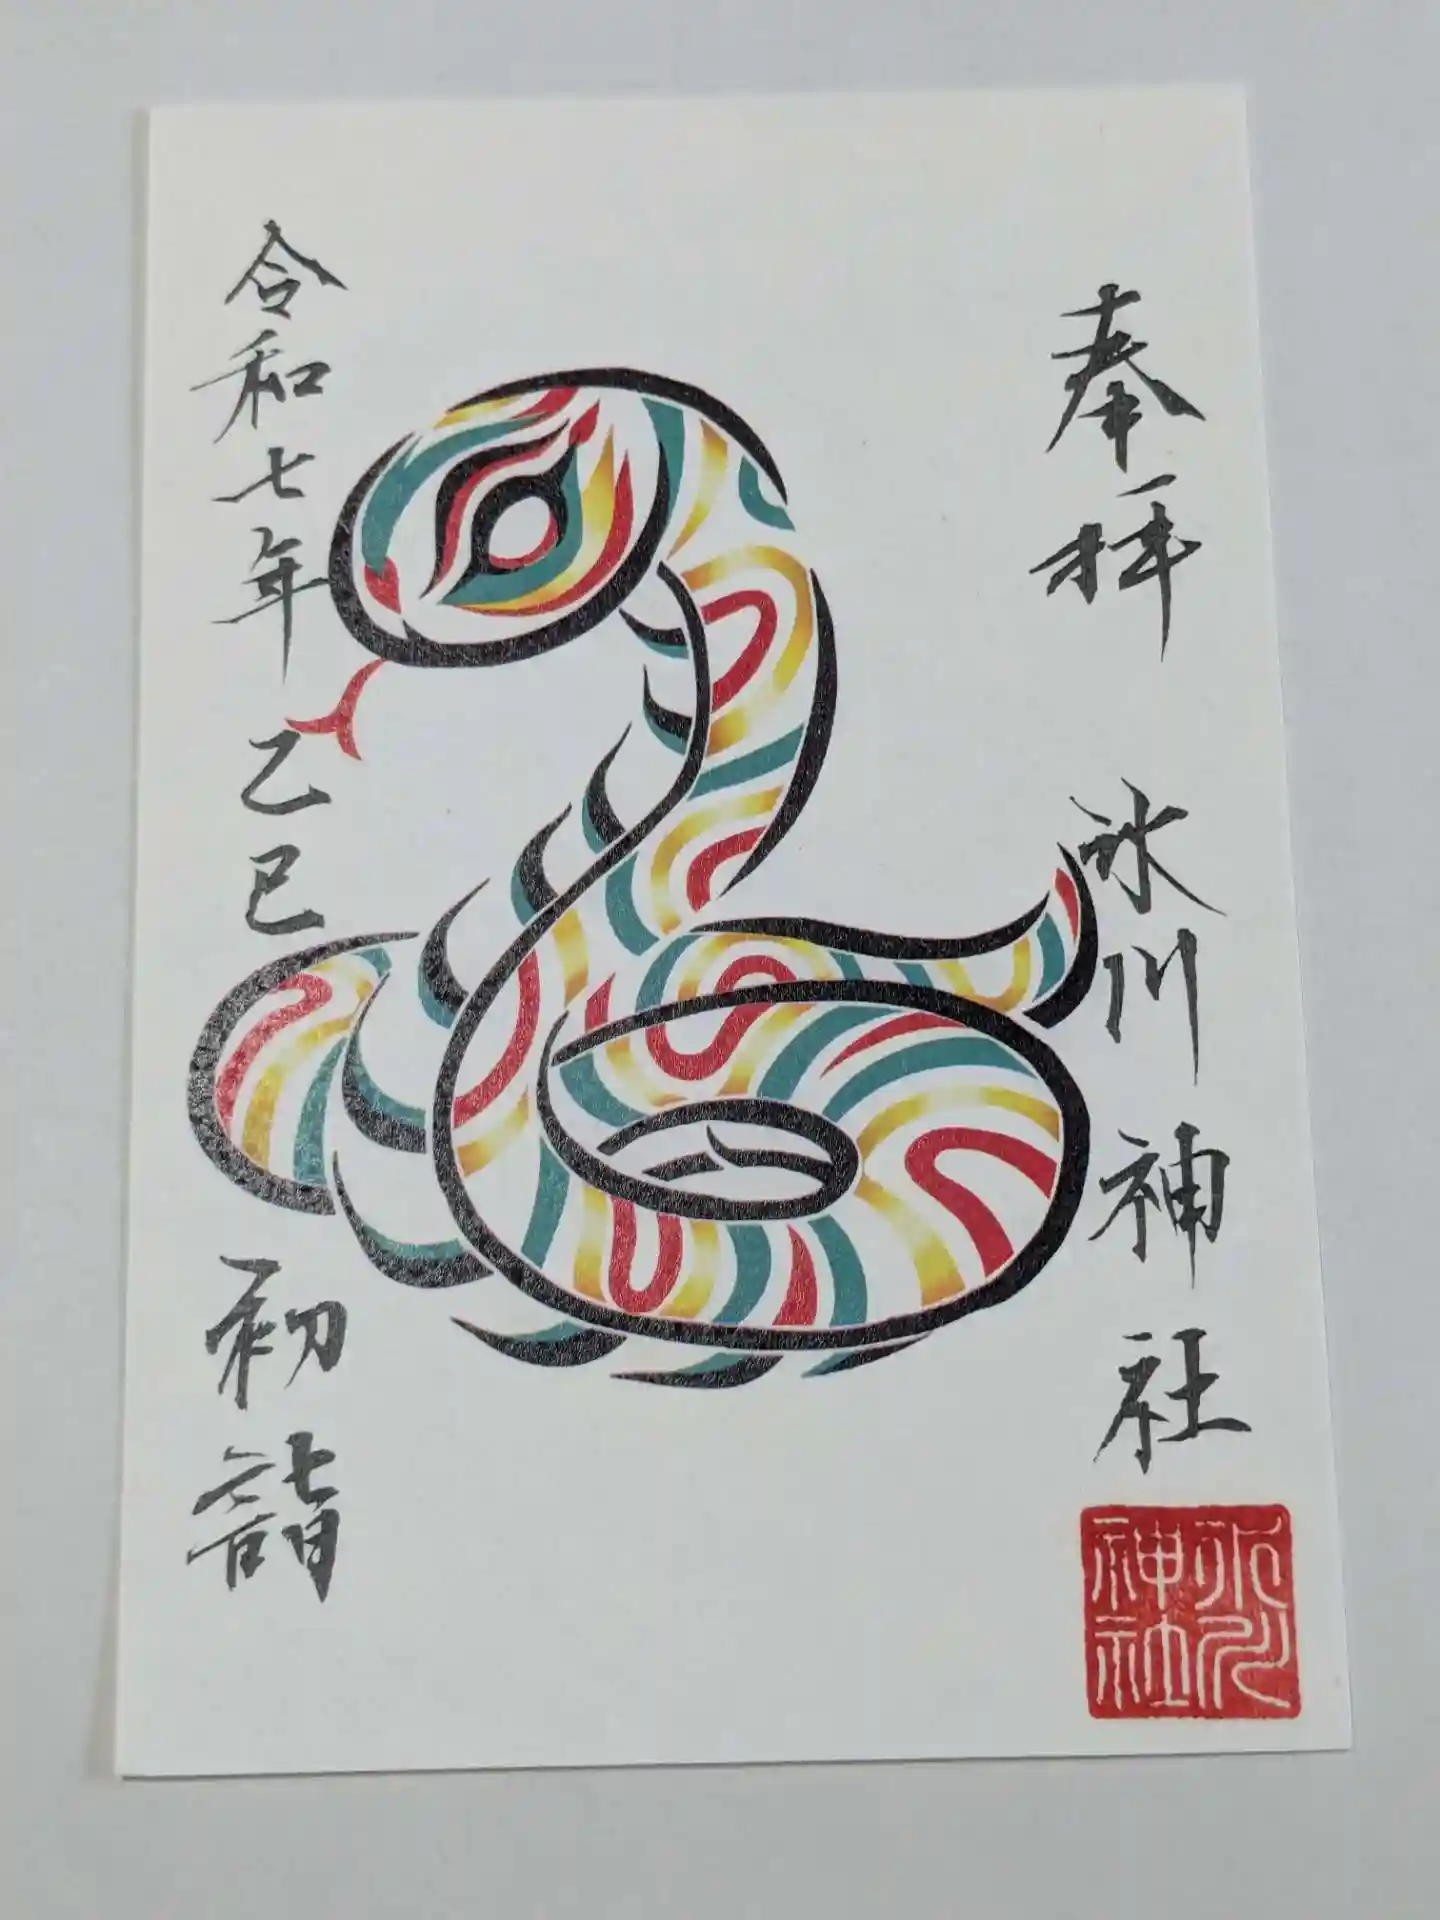 奉拝
氷川神社
令和七年乙巳
初詣
氷川
神社